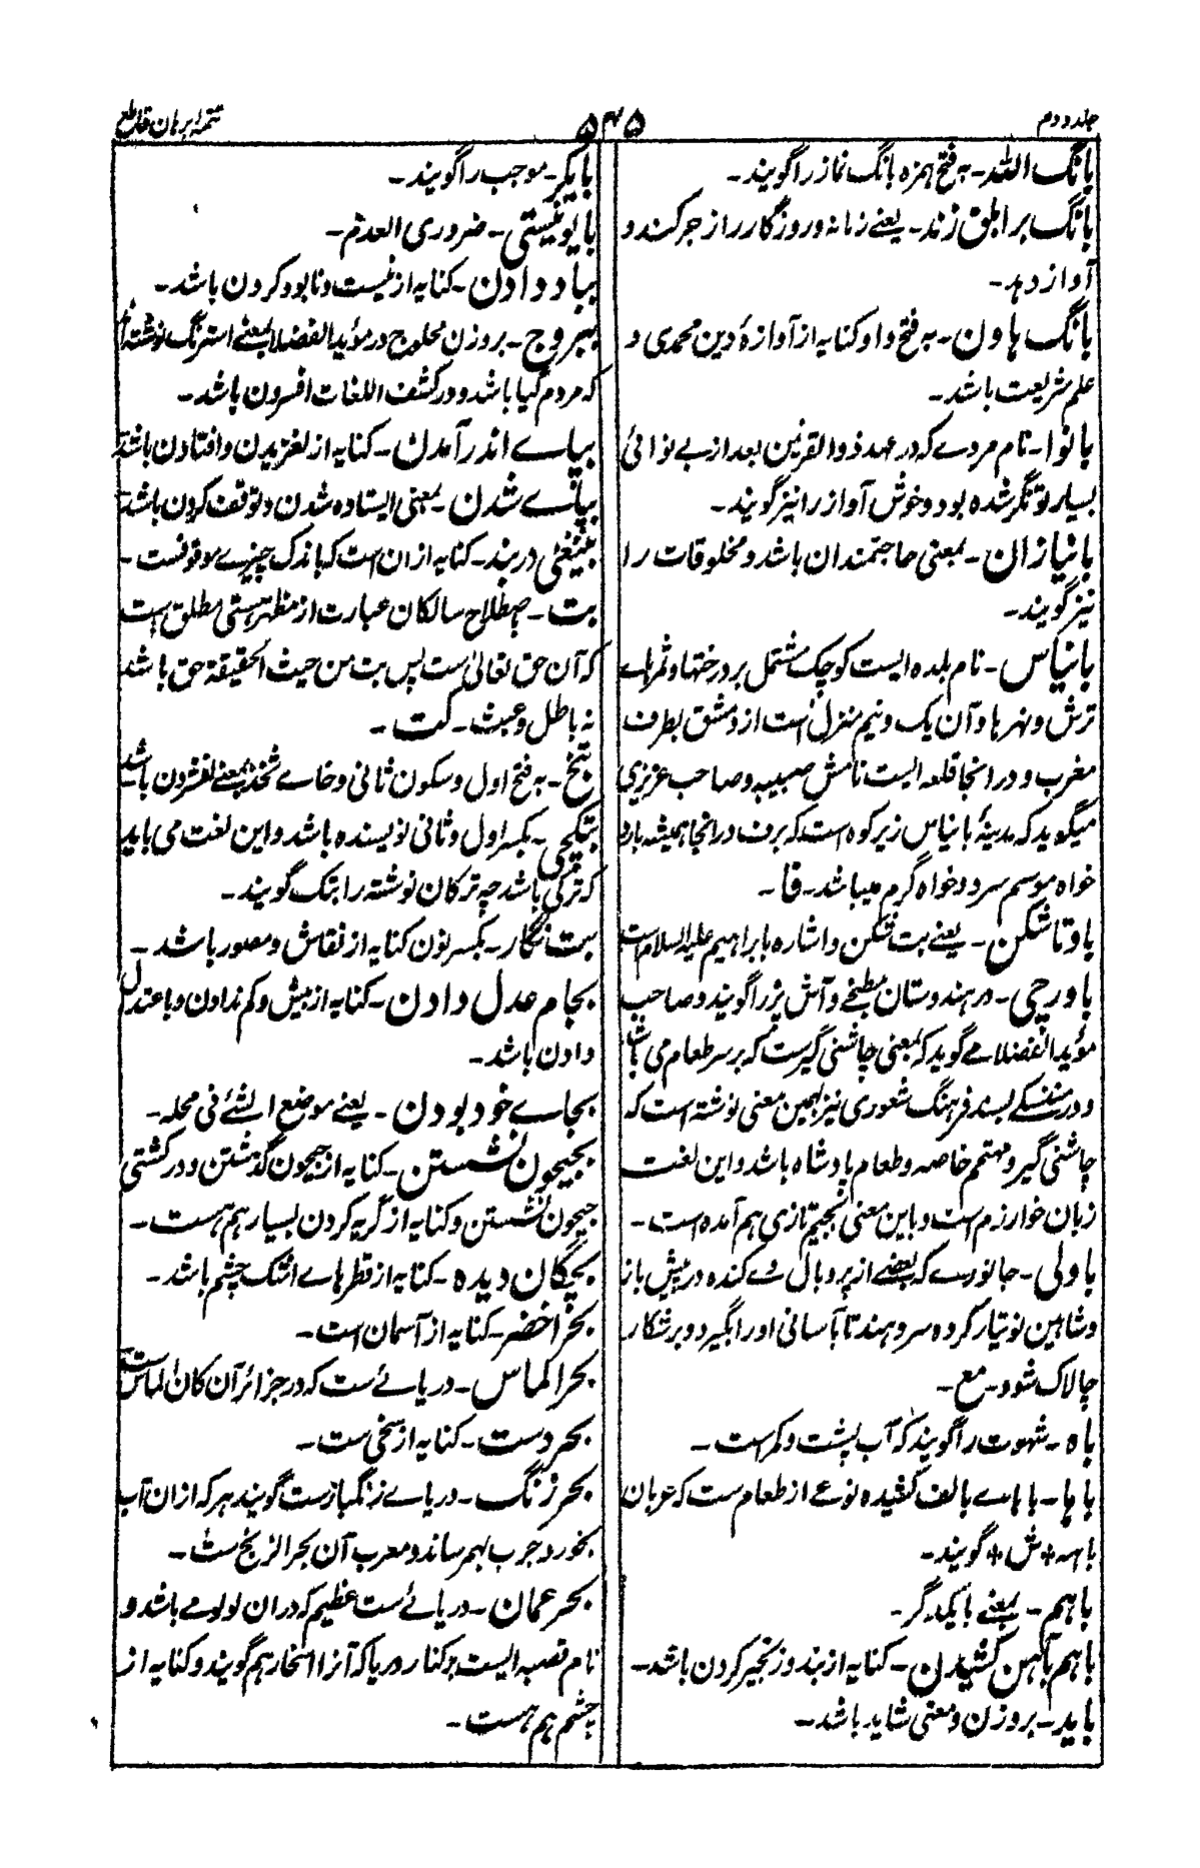 جلد دوم
۵۴۵
تتمهٔ برهان قاطع
بانگ الله - به فتح همزه بانگ نماز را گویند -
بانگ بر ابلق زند - یعنے زمانه و روزگار را زجر کند و
آواز دهد -
بانگ هاون - به فتح واو کنایه از آوازهٔ دین محمدی و
علم شریعت باشد -
بانوا - نام مردے که در عهد ذوالقرنین بعد از بے نوائی
بسیار توانگر شده بود و خوش آواز را نیز گویند -
بانیازان - بمعنی حاجتمندان باشد و مخلوقات را
نیز گویند -
بانیاس - نام بلده ایست کوچک مشتمل بر درختها و ثمرهاے
ترش و نهرها و آن یک و نیم منزل است از دمشق بطرف
مغرب و در انجا قلعه ایست نامش صبیبه و صاحب عزیزی
میگوید که مدینهٔ بانیاس زیر کوه است که برف در انجا همیشه بارد
خواه موسم سرد و خواه گرم میباشد - فا -
باوتاشکن - یعنے بت شکن و اشاره بابراهیم علیه السلام است
باورچی - در هندوستان مطبخے و آش پز را گویند و صاحب
مؤید الفضلا مے گوید که بمعنی چاشنی گیرست که بر سر طعام می باشد
و در منسکے بسند فرهنگ شعوری نیز بهمین معنی نوشته است که
چاشنی گیر و مهتمم خاصه و طعام پادشاه باشد و این لغت
زبان خوارزم است و باین معنی بجیم تازی هم آمده است -
باولی - جانورے که بعضے از پر و بال وے کنده در پیش باز
و شاهین نو تیار کرده سر دهند تا بآسانی او را بگیرد و بر شکار
چالاک شود - مع -
باه - شهوت را گویند که آب پشت و کمر است -
باها - باهاے بالف کشیده نوعے از طعام ست که عربان
باهه * ش * گویند -
باهم - بمعنے بایکدگر -
باهم بآهن کشیدن - کنایه از بند و زنجیر کردن باشد -
باید - بر وزن و معنی شاید باشد -
بایکر - موجب را گویند -
بایونیستی - ضروری العدم -
بباد دادن - کنایه از نیست و نابود کردن باشد -
ببروج - بر وزن محلوج در مؤید الفضلا بمعنے استرنگ نوشته اند
که مردم گیا باشد و در کشف اللغات افسرون باشد -
بپاے اندر آمدن - کنایه از لغزیدن و افتادن باشد
بپاے شدن - بمعنی ایستاده شدن و توقف کردن باشد
در بند - کنایه از ان است که باندک چیزے موقوفست -
بت - باصطلاح سالکان عبارت از مظهر هستی مطلق است
که آن حق تعالیٰ ست پس بت من حیث الحقیقة حق باشد
نه باطل و عبث - کت -
بتخ - به فتح اول و سکون ثانی و خاے شخذ بمعنے لغزدن باشد
بتکچی - بکسر اول و ثانی نویسنده باشد و این لغت می باید
که ترکی باشد چه ترکان نوشته را بتک گویند -
بت نگار - بکسر نون کنایه از نقاش و مصور باشد -
بجام عدل دادن - کنایه از بیش و کم ندادن و باعتدال
دادن باشد -
بجاے خود بودن - یعنے موضع الشئے فی محله -
بجیحون نشستن - کنایه از جیحون گذشتن و در کشتی
جیحون نشستن و کنایه از گریه کردن بسیار هم هست -
بچگان دیده - کنایه از قطرهاے اشک چشم باشد -
بحر اخضر - کنایه از آسمان است -
بحر الماس - دریائے ست که در جزائر آن کان الماس ست
بحر دست - کنایه از سخی ست -
بحر زنگ - دریاے زنگبار ست گویند هر که از ان آب
بخورد جرب بهمرساند و معرب آن بحر الزنج ست -
بحر عمان - دریائے ست عظیم که در ان لولوے باشد و
نام قصبه ایست بر کنار دریا که آنرا سخار هم گویند و کنایه از
چشم هم هست -